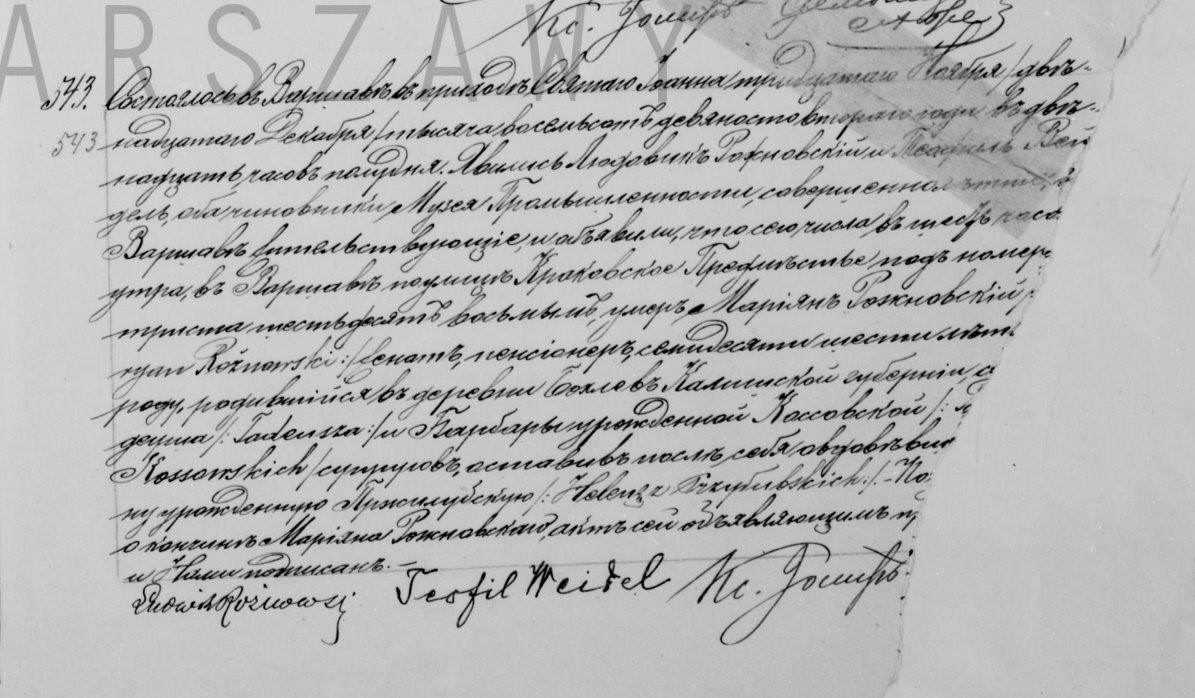 ARSZAWY
Кс.
543. Состоялось въ Варшавѣ въ приходѣ Святаго Іоанна тридцатаго Ноября /двѣ-
543
надцатаго Декабря/ тысяча восемьсотъ девяносто втораго года въ двѣ-
надцать часовъ полудня. Явились Людовикъ Рожновскій и Теофиль Вей
дель, оба чиновники Музея Промышленности, совершеннолѣтніе, въ
Варшавѣ жительствующіе, и объявили, что сего числа, въ шесть часо
утра, въ Варшавѣ по улицѣ Краковское Предмѣстье подъ номер
триста шестьдесятъ восьмымъ, умеръ Маріянъ Рожновскій
ryan Rożnowski:/ женатъ, пенсіонеръ, семидесяти шести лѣтъ
роду, родившійся въ деревни Калишской губерніи, с
деуша /:Tadeusza:/ и Барбары урожденной Коссовской /:
Kossowskich/ супруговъ, оставивъ послѣ себя овдовѣвш
ну урожденную Пржилубскую /:Heleng z Przyłubskich:/.- По
о кончинѣ Маріяна Рожновскаго, актъ сей объявляющимъ п
и Нами подписанъ.-
Ludwik Rożnowski Teofil Weidel Кс.